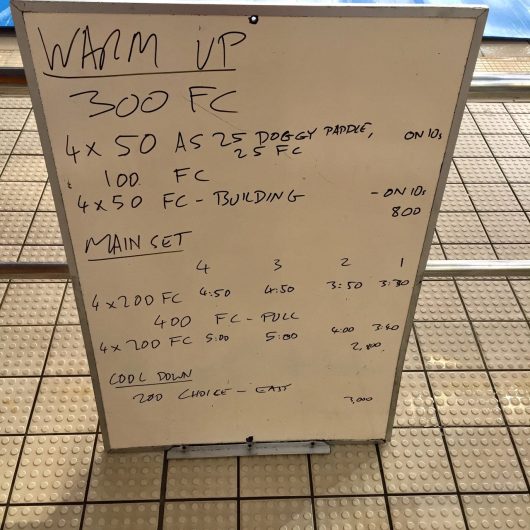 WARM UP
300 FC
4 x 50 AS 25 DOGGY PADDLE, ON 10s
25 FC
100 FC
4 x 50 FC - BUILDING - ON 10s
800
MAIN SET
4 3 2 1
4 x 200 FC 4:50 4:50 3:50 3:30
400 FC - PULL
4 x 200 FC 5:00 5:00 4:00 3:40
2,000
COOL DOWN
200 CHOICE - EASY
3,000